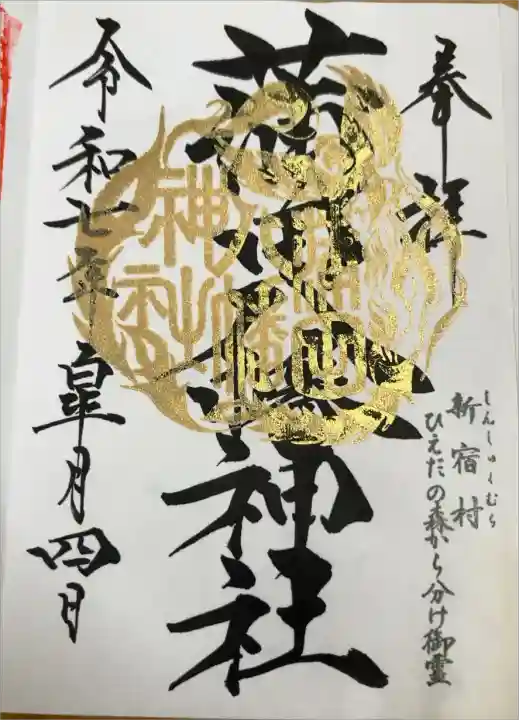 奉拝
しんしゅくむら
新宿村
ひえだの森から分け御霊
蒲田八幡神社
令和七年皐月四日